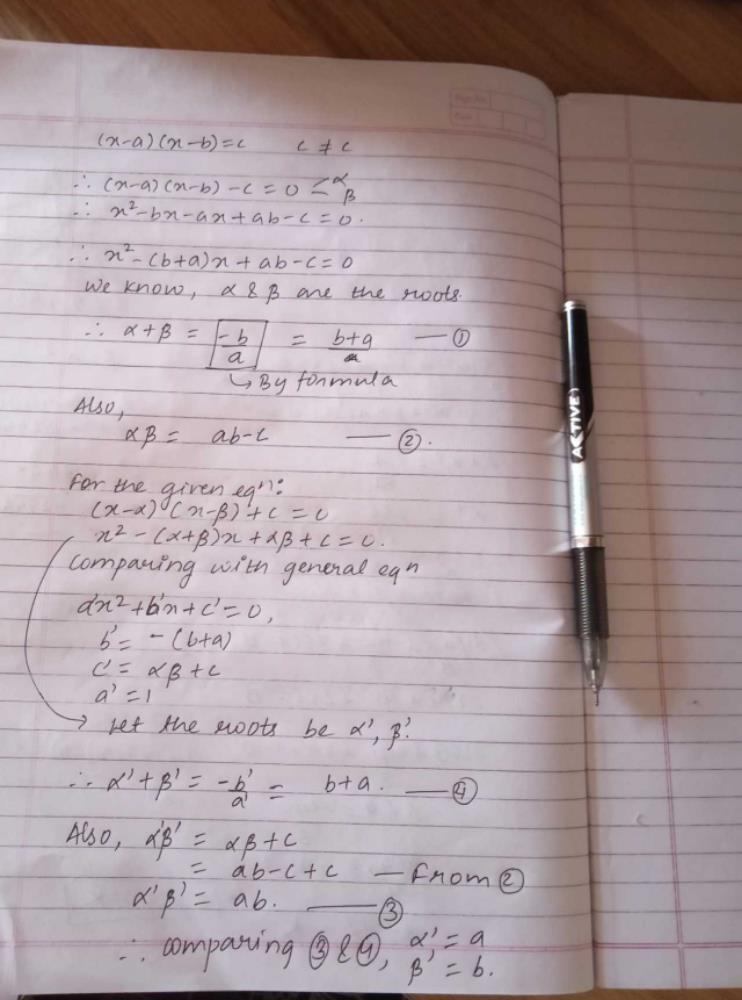 (x-a)(x-b)=c c ≠ c
∴ (x-a)(x-b)-c=0 < α β
∴ x²-bx-ax+ab-c=0.
∴ x²-(b+a)x+ab-c=0
We know, α & β are the roots.
∴ α+β = -b/a = b+a —①
↳ By formula
Also,
αβ = ab-c —②.
For the given eqⁿ:
(x-α)(x-β)+c=0
x²-(α+β)x+αβ+c=0.
Comparing with general eqn
a'x²+b'x+c'=0,
b'= -(b+a)
c'= αβ+c
a'=1
→ Let the roots be α', β'.
∴ α'+β' = -b'/a' = b+a. —④
Also, α'β' = αβ+c
= ab-c+c —From ②
α'β' = ab. —③
∴ comparing ③ & ④, α'=a
β'=b.
ACTIVE